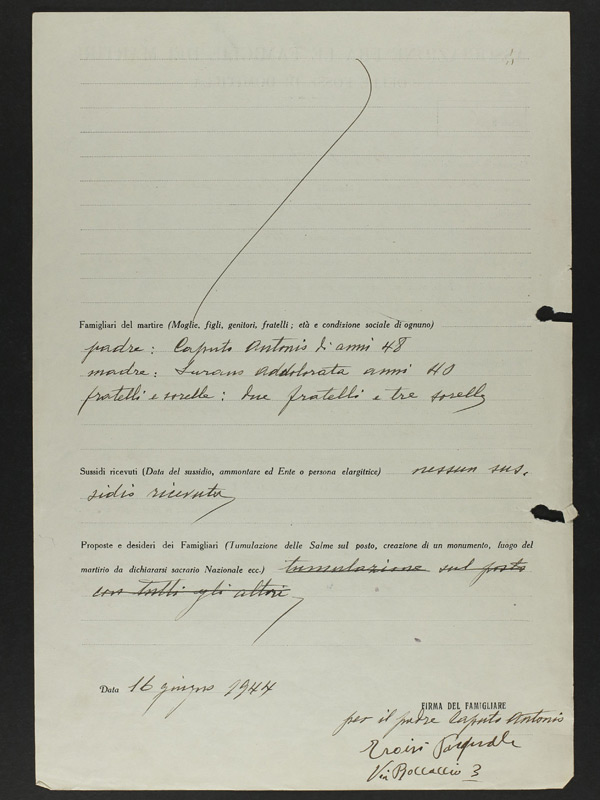 Famigliari del martire (Moglie, figli, genitori, fratelli ; età e condizione sociale di ognuno)
padre : Caputo Antonio di anni 48
madre : Lurans Addolorata anni 40
fratelli e sorelle : due fratelli e tre sorelle
Sussidi ricevuti (Data del sussidio, ammontare ed Ente o persona elargitrice) nessun sus-
sidio ricevuto
Proposte e desideri dei Famigliari (Tumulazione delle Salme sul posto, creazione di un monumento, luogo del
martirio da dichiararsi sacrario Nazionale ecc.) tumulazione sul posto
con tutti gli altri
Data 16 giugno 1944
FIRMA DEL FAMIGLIARE
per il padre Caputo Antonio
Troisi Pasquale
Via Boccaccio 3